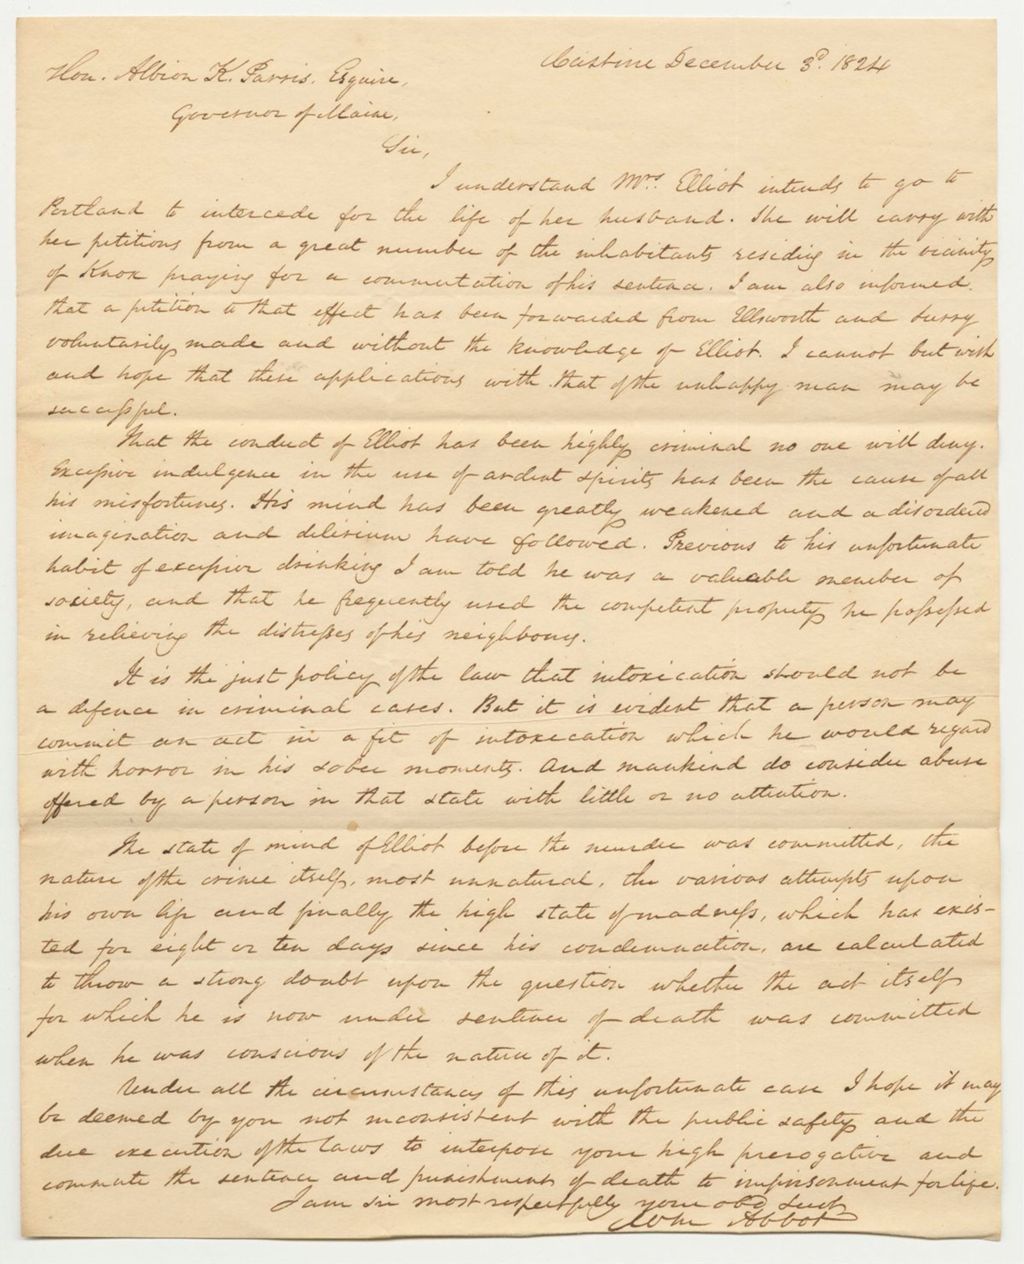 Castine December 3d. 1824
Hon. Albion K. Parris. Esquire,
Governor of Maine,
Sir,
I understand Mrs. Elliot intends to go to
Portland to intercede for the life of her husband. She will carry with
her petitions from a great number of the inhabitants residing in the vicinity
of Knox praying for a commutation of his sentence. I am also informed
that a petition to that effect has been forwarded from Ellsworth and Surry
voluntarily made and without the knowledge of Elliot. I cannot but wish
and hope that these applications with that of the unhappy man may be
successful.
That the conduct of Elliot has been highly criminal no one will deny.
Excessive indulgence in the use of ardent spirits has been the cause of all
his misfortunes. His mind has been greatly weakened and a disordered
imagination and delirium have followed. Previous to his unfortunate
habit of excessive drinking I am told he was a valuable member of
society, and that he frequently used the competent property he possessed
in relieving the distresses of his neighbours.
It is the just policy of the law that intoxication should not be
a defence in criminal cases. But it is evident that a person may
commit an act in a fit of intoxication which he would regard
with horror in his sober moments. And mankind do consider abuse
offered by a person in that state with little or no attention.
The state of mind of Elliot before the murder was committed, the
nature of the crime itself, most unnatural, the various attempts upon
his own life and finally the high state of madness, which has exis-
ted for eight or ten days since his condemnation, are calculated
to throw a strong doubt upon the question whether the act itself
for which he is now under sentence of death was committed
when he was conscious of the nature of it.
Under all the circumstances of this unfortunate case I hope it may
be deemed by you not inconsistent with the public safety and the
due execution of the laws to interpose your high prerogative and
commute the sentence and punishment of death to imprisonment for life.
I am sir most respectfully your obd Servt
Wm Abbot